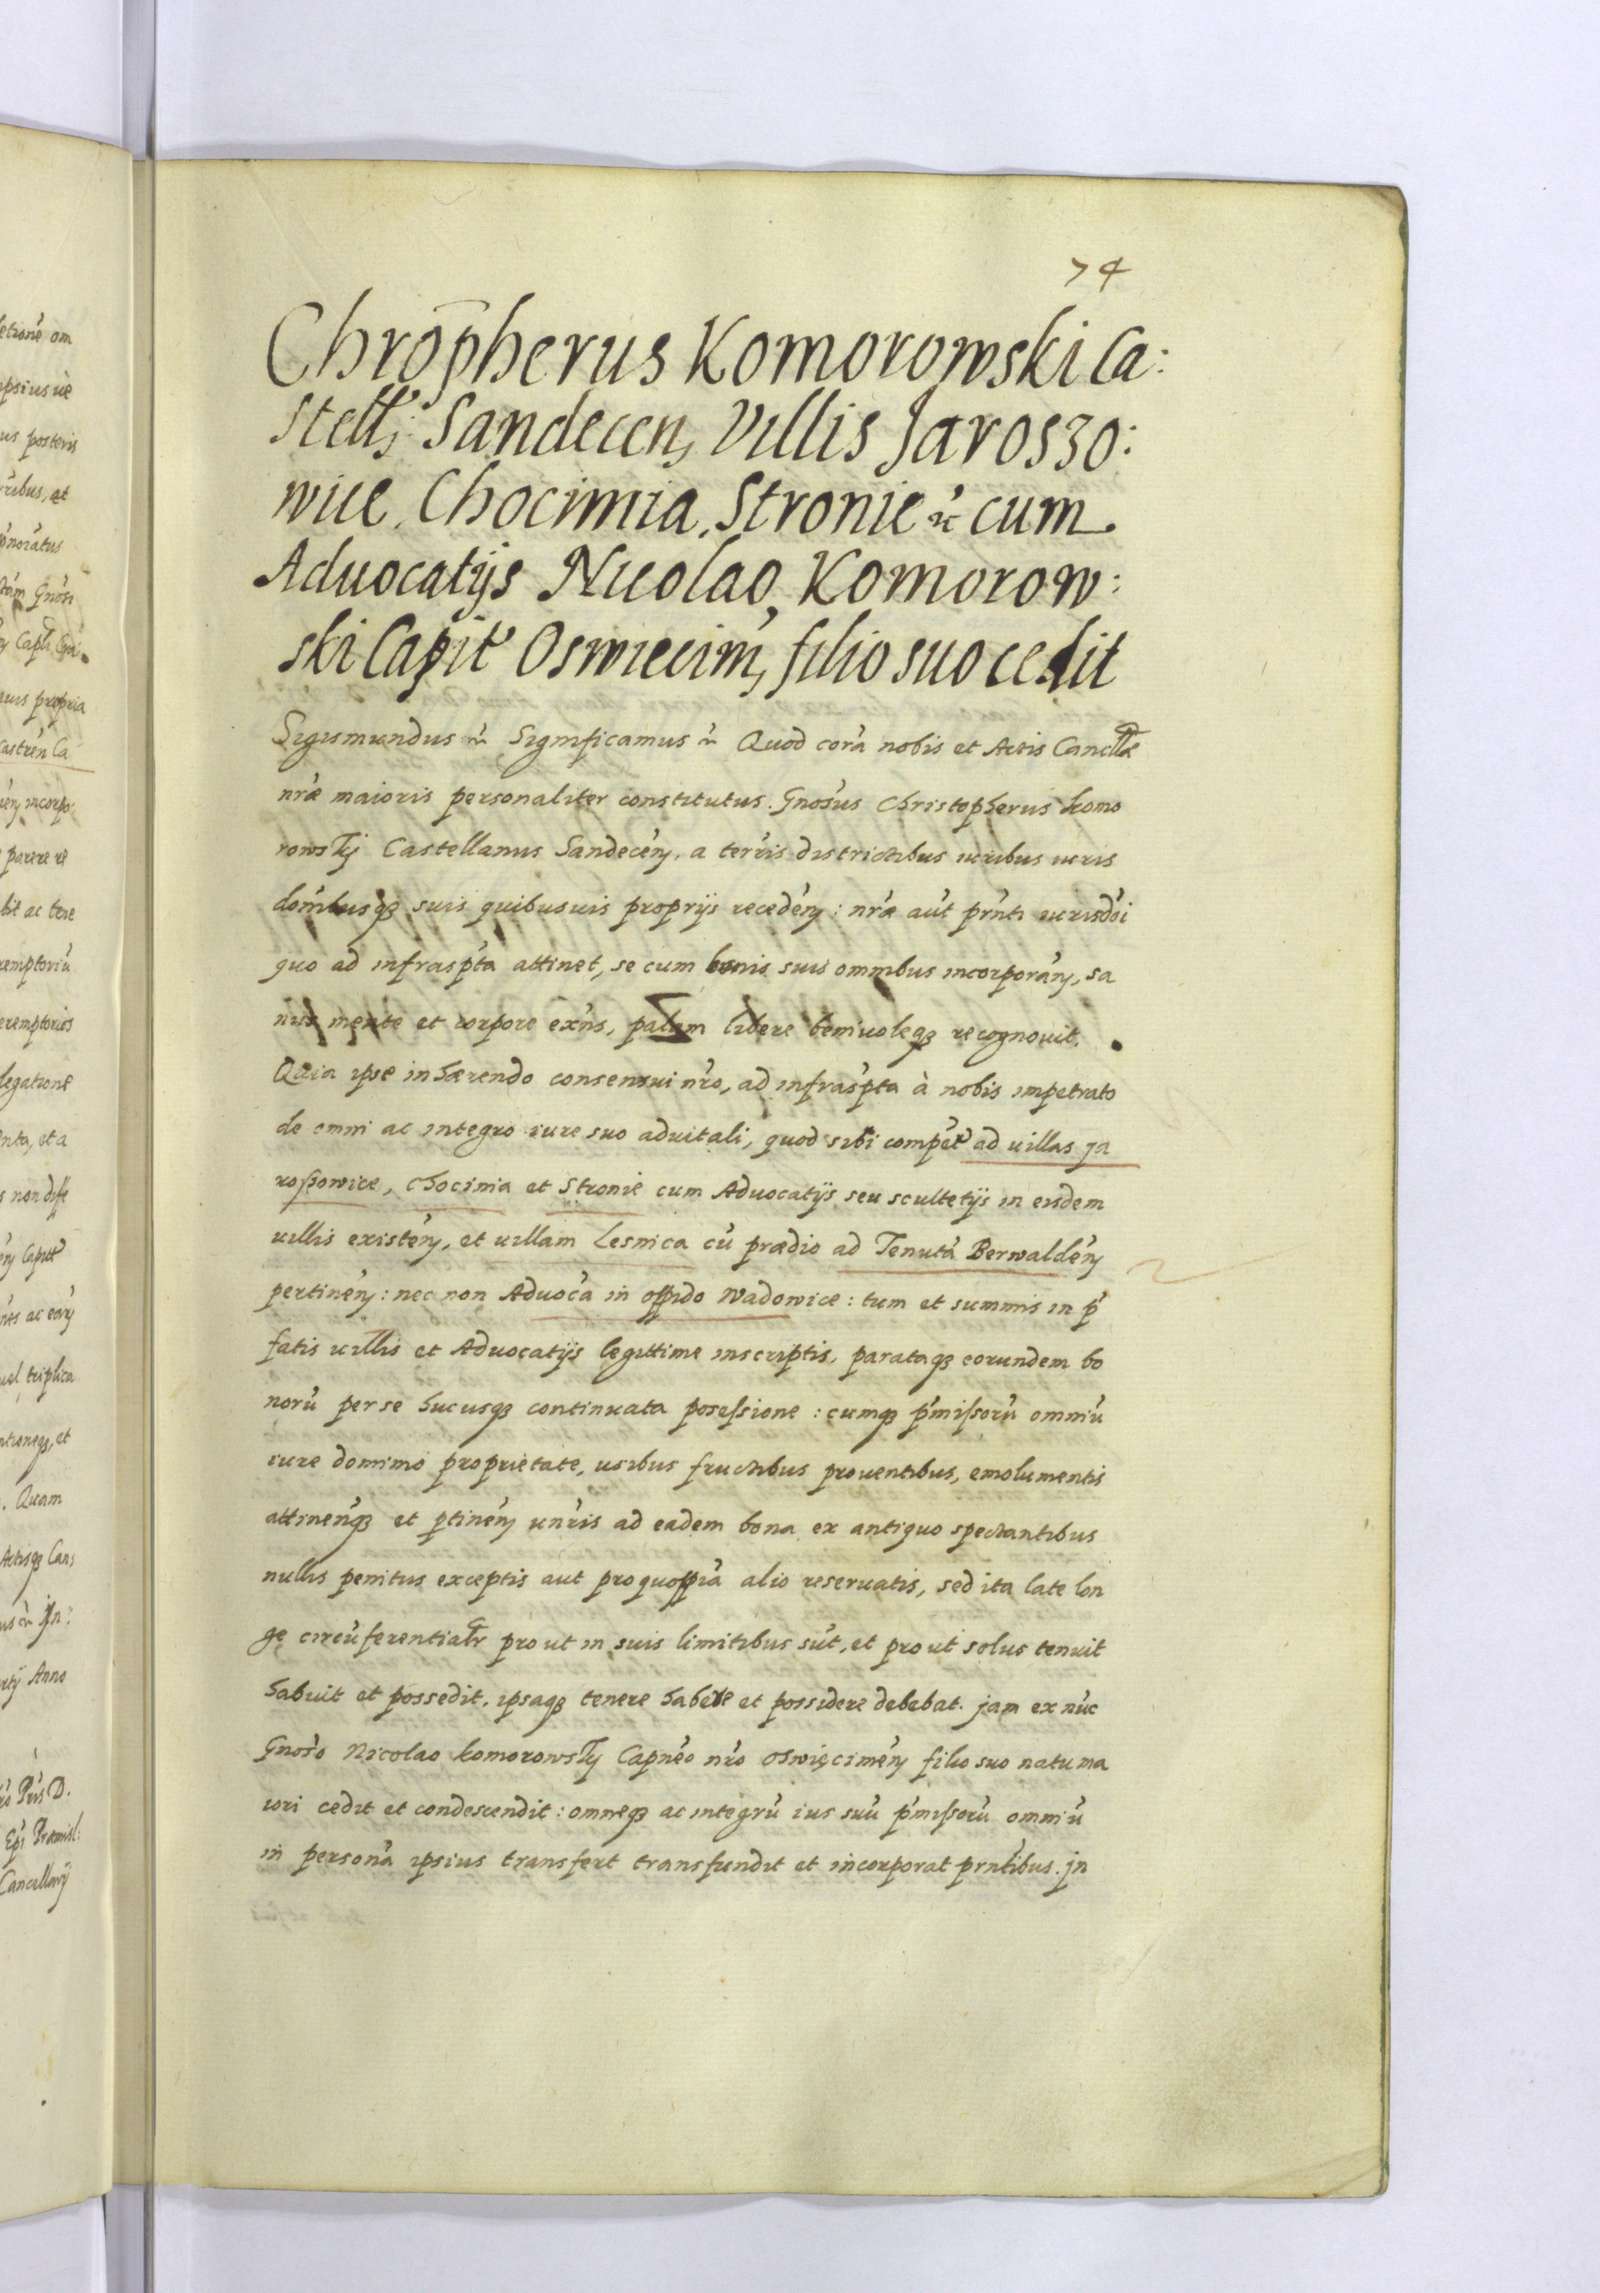 74
Chroph̄erus Komorowski Ca:
stell̃; Sandecen̨ Villis Jaroszo:
wice, Chocimia, Stronie ꝛc̃ cum
Aduocatijs Nicolao Komorow:
ski Capit̃ Oswiecim̨ filio suo cedit
Sigismundus ꝛc̃ Significamus ꝛc̃ Quod corã nobis et Actis Canc̃llæ
nr̃æ maioris personaliter constitutus. Gnosũs Christopherus Komo
rowskj Castellanus Sandecen̨, a terris districtibus iuribus iuris
dom̃ibusq3 suis quibusuis proprijs recedẽn̨: nr̃æ aũt prñti iurisdõi
quo ad infrasp̃ta attinet, se cum bonis suis omnibus incorporãn̨, sa
nus mente et corpore exñs, palam libere beniuoleq3 recognouit.
Quia ipse inhærendo consensui nr̃o, ad infrasp̃ta à nobis impetrato
de omni ac integro iure suo aduitali, quod sibi compet̃ ad uillas Ja
roszowice, Chocinia et Stronie cum Aduocatijs seu scultetijs in eisdem
uillis existẽn̨, et uillam Lesnica cũ prædio ad Tenutã Berwaldẽn̨
pertinẽn̨: nec non Aduoc̃a in oppido Wadowice: tum et summis in p̃
fatis uillis et Aduocatijs legittime inscriptis, parataq3 eorundem bo
norũ per se hucusq3 continuata posessione: cumq3 p̃missorũ omniũ
iure dominio proprietate, usibus fructibus prouentibus, emolumentis
attinen̨q3 et ptinẽn̨ unr̃is ad eadem bona ex antiquo spectantibus
nullis penitus exceptis aut pro quopiã alio reseruatis, sed ita late lon
ge circũferentialr̃ prout in suis limitibus sũt, et prout solus tenuit
habuit et possedit, ipsaq3 tenere habere et possidere debebat. jam ex nũc
Gnoso̊ Nicolao Komorowskj Capnẽo nr̃o Oswięcimẽn̨ filio suo natu ma
iori cedit et condescendit: omneq3 ac integrũ ius suũ p̃missorũ omniũ
in personã ipsius transfert transfundit et incorporat prñtibus. jn